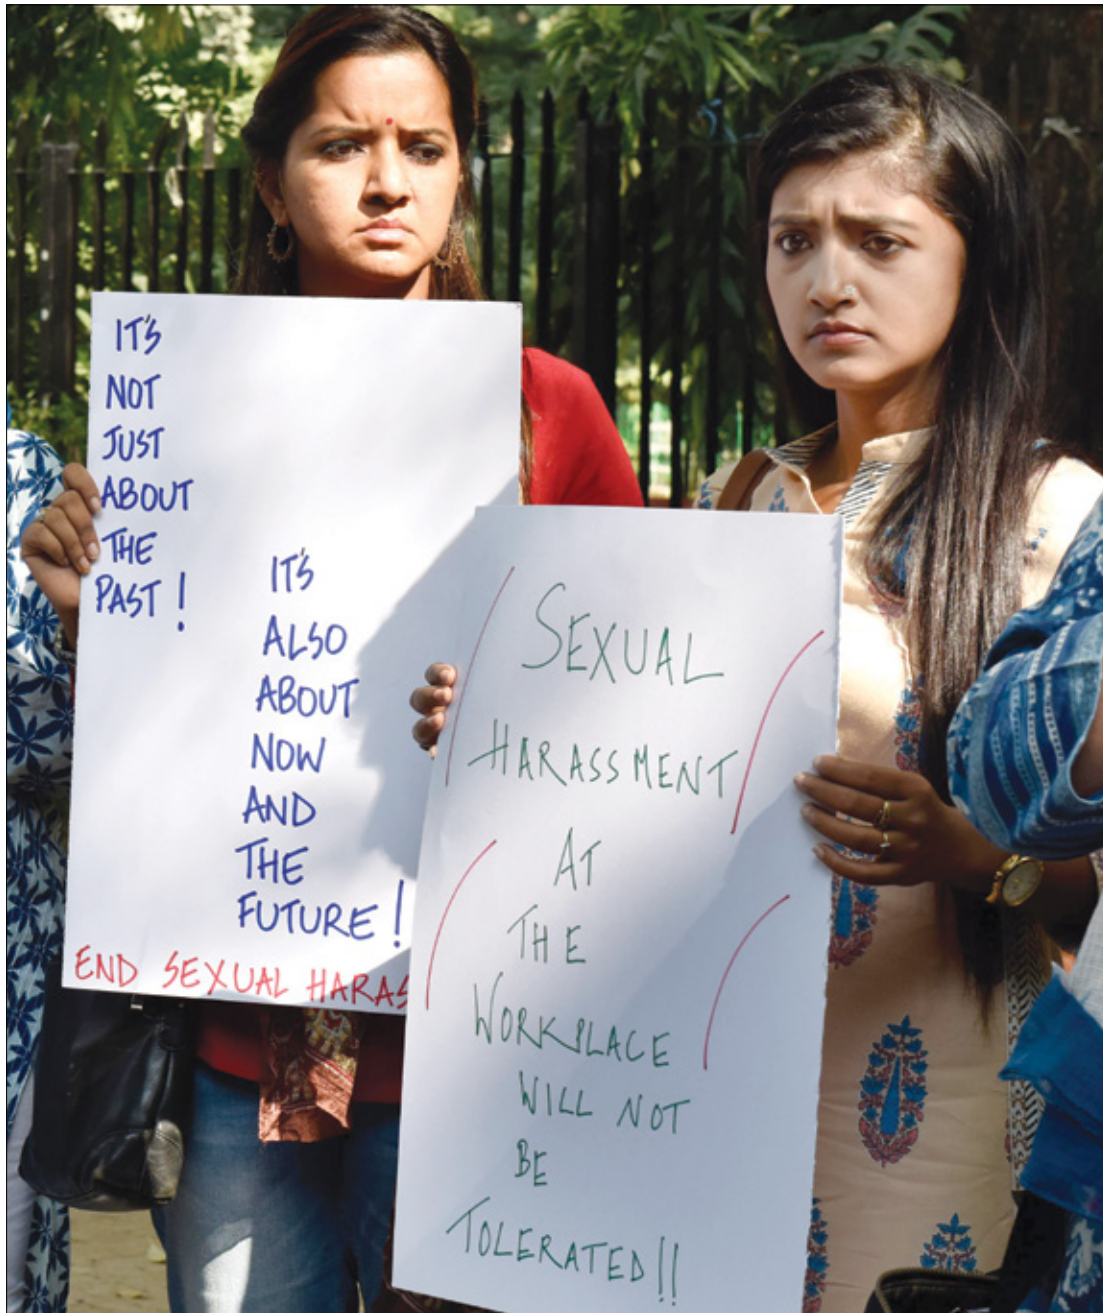 IT'S
NOT
JUST
ABOUT
THE
PAST!
IT'S
ALSO
ABOUT
NOW
AND
THE
FUTURE!
END SEXUAL HARAS
SEXUAL
HARASSMENT
AT
THE
WORKPLACE
WILL NOT
BE
TOLERATED!!